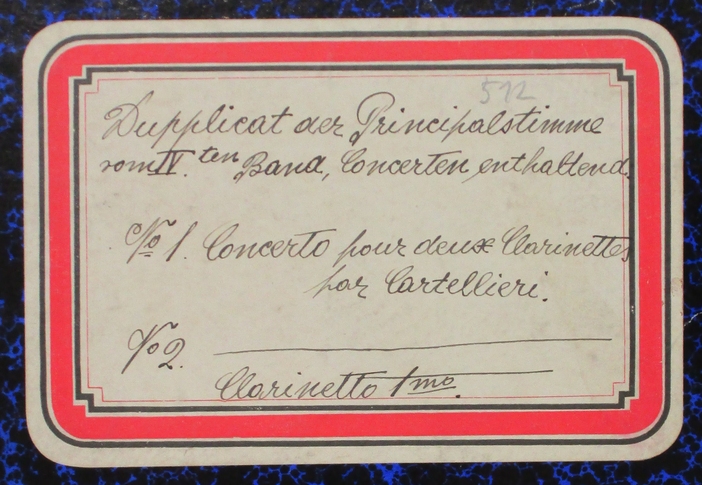 512
Dupplicat der Principalstimme
vom IV.ten Band, Concerten enthaltend.
No 1. Concerto pour deux Clarinettes
par Cartellieri.
No 2.
Clarinetto 1mo.